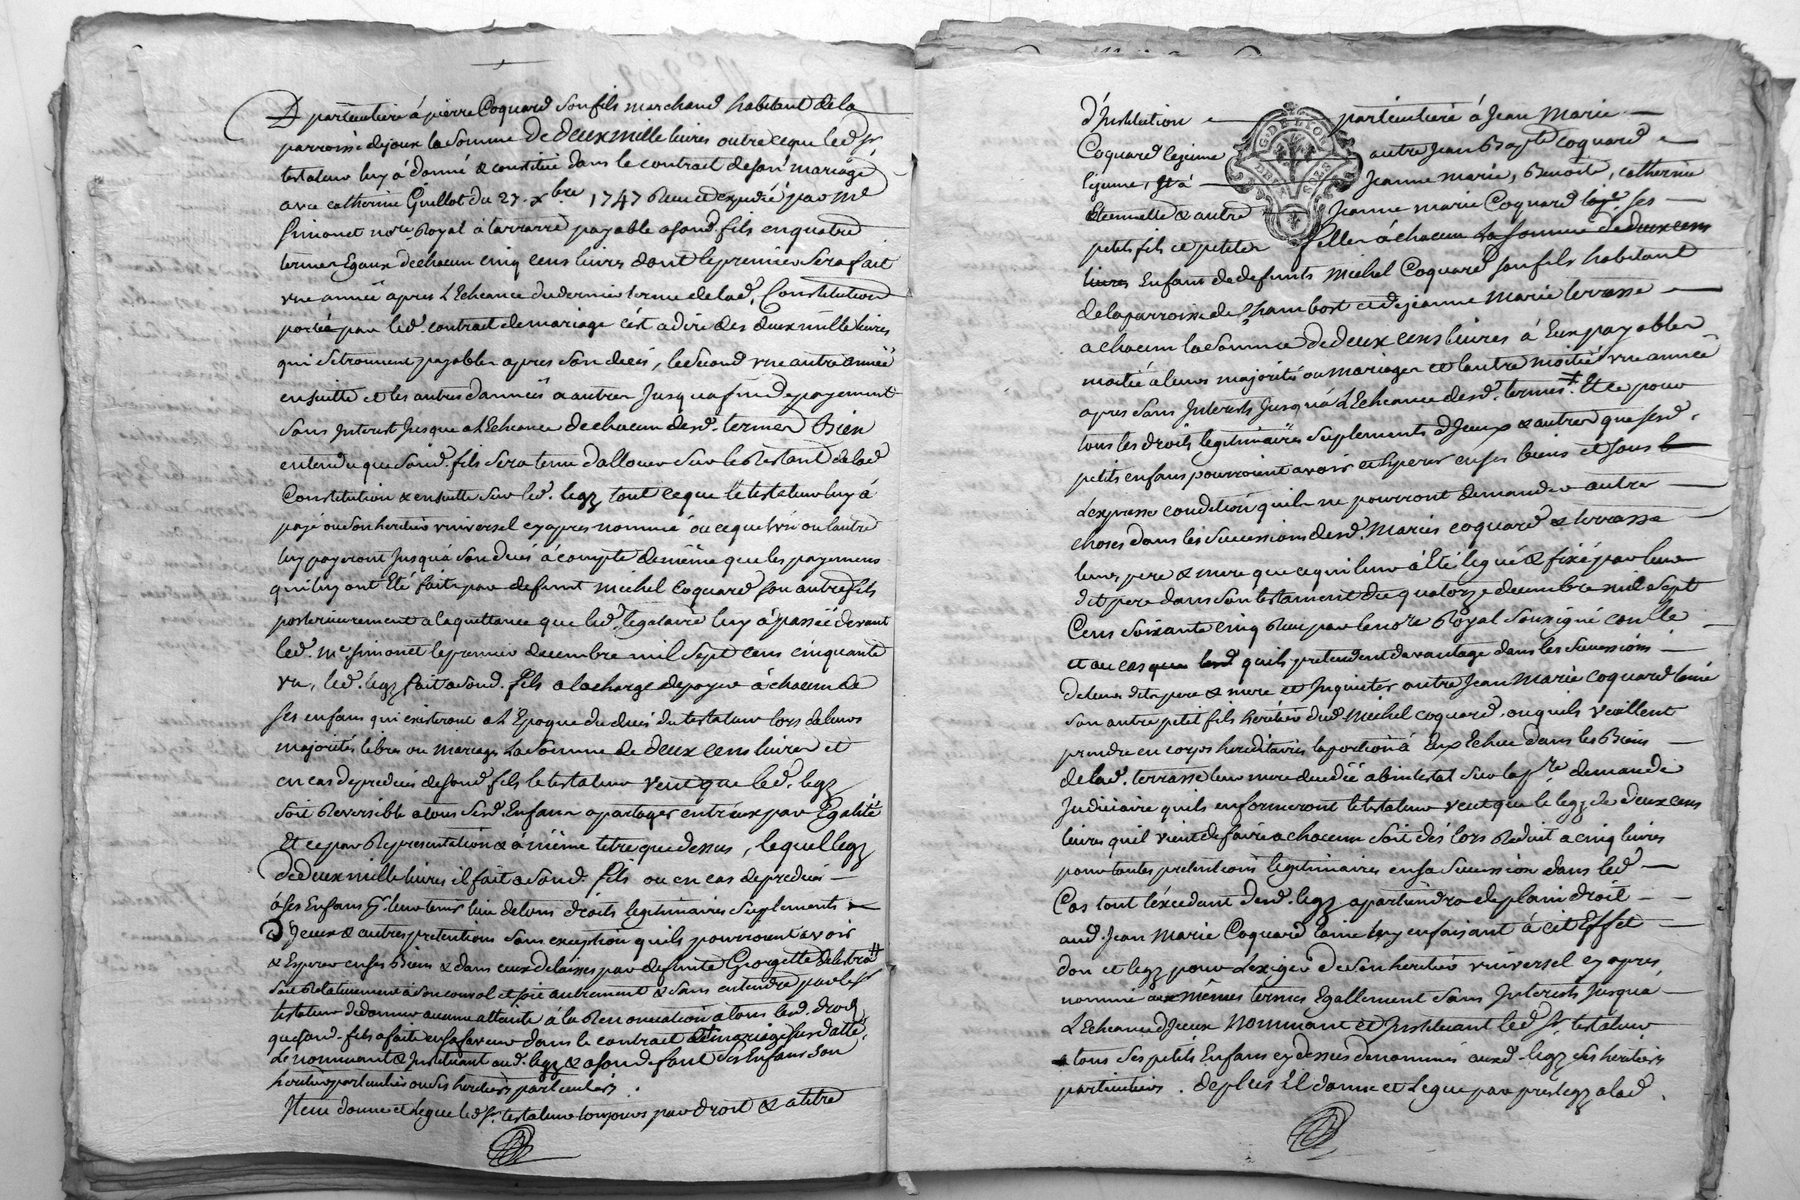 particuliere á pierre Coquard son fils marchand habitant de la
parroisse de joux la Somme de deux mille livres outre ce que led. Sr.
testateur luy á donné & constitué dans le contrat de son mariage
avec catherine Guillot du 27. xbre 1747 Recu et expedié par Me
Simonet nore. Royal á tarrare payable a sond. fils en quatre
termes Egaux de chacun cinq cens livres dont le premier sera fait
vne année apres l'Echeance du dernier terme de lad. Constitution
portée par led. contrat de mariage c'ést a dire des deux mille livres
qui se trouvent payables apres son decés, le second vne autre année
ensuitte et les autres d'années a autres jusqu'a fin de payement
sans Interest jusque a l'Echeance de chacun desd. termes Bien
entendu que sond. fils sera tenu d'allouer sur le Restant de lad.
Constitution & ensuitte sur led. legz tout ce que le testateur luy á
payé ou son heritier vniversel cy apres nommé ou ce que l'vn ou l'autre
luy payeront jusqu'á son decés á compte de même que les payemens
qui luy ont Eté faits par defunt Michel Coquard son autre fils
posterieurement a la quittance que led. legataire luy á passée devant
led. Me Simonet le premier decembre mil sept cens cinquante
vn, led. legz fait a sond. fils a la charge de payer á chacun de
ses enfans qui existeront a l'Epoque du decés du testateur lors de leurs
majorités libres ou mariages la somme de deux cens livres et
en cas de predecés de sond. fils le testateur veut que led. legz
soit Reversible a tous sesd. Enfans a partager entr'eux par Egalité
Et ce par Representation & a même titre que dessus, lequel legz
de deux mille livres il fait a sond. fils ou en cas de predecés
á ses Enfans pr. leur tenir lieu de tous droits legitimaires suplements
d'Jceux & autres pretentions sans exception qu'ils pourroient avoir
& Esperer en ses Biens & dans ceux delaissés par defunte Georgette Delestra
soit Relativement á son convol et soit autrement & sans entendre par led. Sr.
testateur donner aucune atteinte á la Renonciation á tous lesd. droits
que sond. fils a faite en sa faveur dans le contrat de mariage susdatté,
Le nommant & Jnstituant aud. legz & a son defaut ses Enfans son
heritier particulier ou ses heritiers particuliers.
Jtem donne et legue led. Sr. testateur toujours par droit & a titre
d'Institution particuliere á Jean Marie
Coquard le jeune autre Jean Bapte. Coquard
le jeune, Et á Jeanne Marie, Benoite, catherine
Etiennette & autre Jeanne Marie Coquard ses
petits fils et petites filles á chacun la somme de deux cens
livres Enfans de defunts Michel Coquard son fils habitant
de la parroisse de Chambost et de jeanne Marie terrasse
a chacun la Somme de deux cens livres á Eux payables
moitié á leurs majorités ou mariages et l'autre moitié vne année
apres sans Jnterests jusqu'á l'Echeance desd. termes. Et ce pour
tous les droits legitimaires suplements d'Jceux & autres que sesd.
petits enfans pourroient avoir et Esperer en ses biens et sous
l'expresse condition qu'ils ne pourront demander autres
choses dans les Successions desd. Mariés Coquard & terrasse
leurs pere & mere que ce qui leur á Eté legué & fixé par leur
dit pere dans son testament du quatorze decembre mil sept
Cens soixante cinq Recu par le nore Royal soussigné conllé
et au cas qu'ils pretendent davantage dans les Successions
de leurs dits pere & mere et Jnquieter autre Jean Marie Coquard l'ainé
son autre petit fils heritier dud. Michel Coquard, ou qu'ils veuillent
prendre en corps hereditaires la portion á Eux Echue dans les Biens
de lad. terrasse leur mere decedée abintestat sur la pre. demande
Judiciaire qu'ils en formeront le testateur veut que le legz de deux cens
livres qu'il vient de faire a chacun soit dés lors Reduit a cinq livres
pour toutes pretentions legitimaires en sa Succession dans led.
Cas tout l'excedant desd. legz apartiendra de plain droit
aud. Jean Marie Coquard l'ainé luy en faisant á cét Effet
don et legz pour l'exiger de son heritier vniversel cy apres
nommé aux mêmes termes Egallement sans Jnterests jusqu'a
l'Echeance d'Jceux Nommant et Jnstituant led. Sr. testateur
tous ses petits Enfans cy dessus denommés auxd. legz ses heritiers
particuliers. de plus Il donne et legue par prelegz a lad.